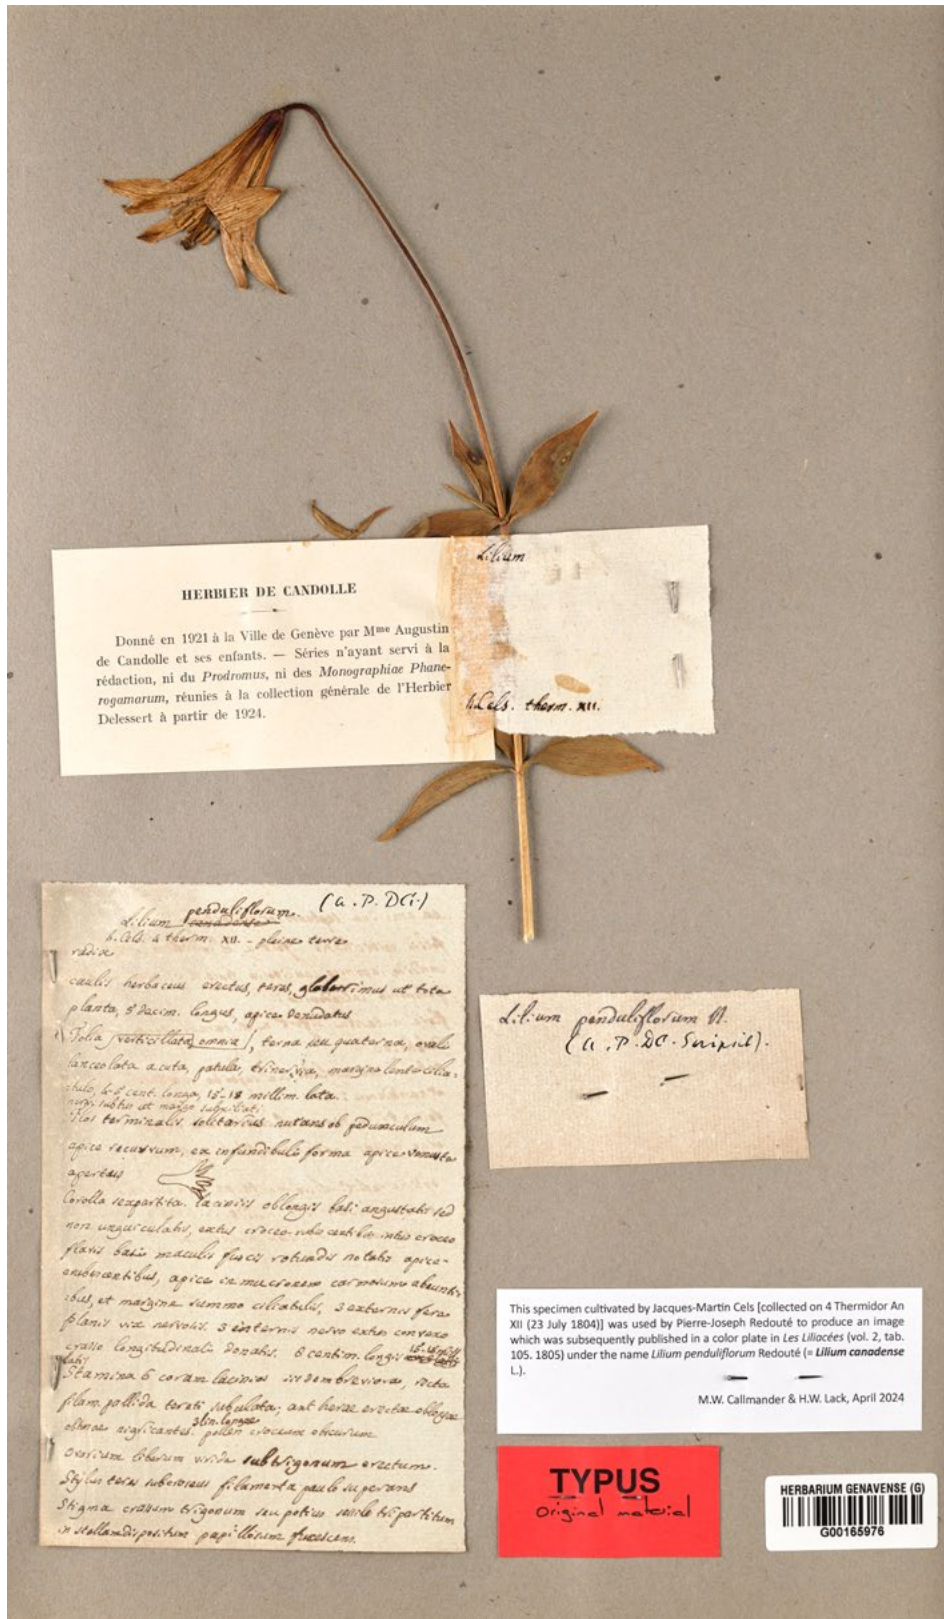 HERBIER DE CANDOLLE
Donné en 1921 à la Ville de Genève par Mme Augustin
de Candolle et ses enfants. — Séries n'ayant servi à la
rédaction, ni du Prodromus, ni des Monographiae Phane-
rogamarum, réunies à la collection générale de l'Herbier
Delessert à partir de 1924.
Lilium
h. Cels. therm. XII.
(a. P. DC.)
penduliflorum.
Lilium canadense
h. Cels. 4 therm. XII. - pleine terre
radix
caulis herbaceus erectus, teres, glaberrimus ut tota
planta, 5 decim. longus, apice denudatus
Folia (verticillata omnia), terna seu quaterna, ovale
lanceolata acuta, patula, trinervia, margine lente cilia-
tulo, 4-5 cent. longa, 15-18 millim. lata.
nervi subtus et margo subciliati
Flos terminalis solitarius nutans ob pedunculum
apice recurvum, ex infundibuli forma apice venusta
apertus
Corolla sexpartita. laciniis oblongis basi angustatis sed
non unguiculatis, extus croceo-rubescentibus intus croceo
flavis basi maculis fuscis rotundis notatis apice-
erubescentibus, apice in mucronem carnosum abeunti-
bus, et margine summo ciliatulis, 3 externis fere
planis vix nervosis. 3 internis nervo extus convexo
crasso longitudinali donatis. 6 centim. longis
latis
Stamina 6 coram lacinios iisdem breviora, recta
filam. pallida tereti subulata; antherae erectae oblongae
obtusae nigricantes. 3 lin. longae pollen croceum obscurum
Ovarium liberum viride subtrigonum erectum.
Stylus teres suberosus filamenta paulo superans
Stigma crassum trigonum seu potius sessile tripartitum
in stellam dispositum papillosum fuscescens.
Lilium penduliflorum N.
(a. P. DC. Scripsit).
This specimen cultivated by Jacques-Martin Cels [collected on 4 Thermidor An
XII (23 July 1804)] was used by Pierre-Joseph Redouté to produce an image
which was subsequently published in a color plate in Les Liliacées (vol. 2, tab.
105. 1805) under the name Lilium penduliflorum Redouté (= Lilium canadense
L.).
M.W. Callmander & H.W. Lack, April 2024
TYPUS
original material
HERBARIUM GENAVENSE (G)
G00165976